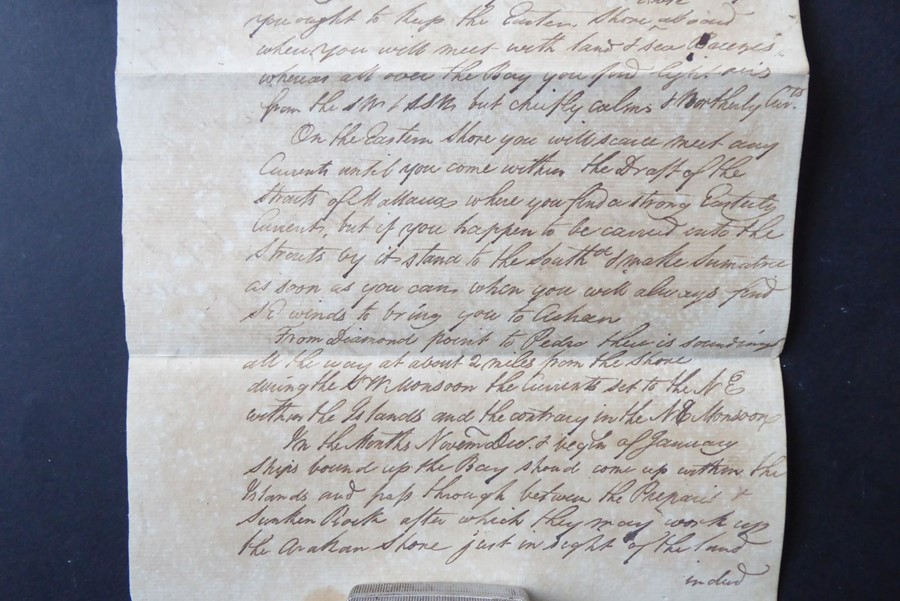 you ought to keep the Eastern Shore aboard
when you will meet with land & sea Breezes
whereas all over the Bay you find light airs
from the SW & SSW but chiefly calms & Northerly Cur.ts
On the Eastern Shore you will scarce meet any
Currents until you come within the Draft of the
Straits of Mallacca where you find a strong Easterly
Current, but if you happen to be carried into the
Straits by it stand to the South.d & make Sumatra
as soon as you can when you will always find
winds to bring you to Achan
From Diamond point to Pedro there is soundings
all the way at about 2 miles from the Shore
during the SW Monsoon the Currents set to the NE
within the Islands and the contrary in the NE Monsoon
In the Months Novem Dec.r & begin of January
Ships bound up the Bay shoud come up within the
Islands and pass through between the Preparis &
Sunken Rock after which they may work up
the Arakan Shore just in sight of the land
indeed